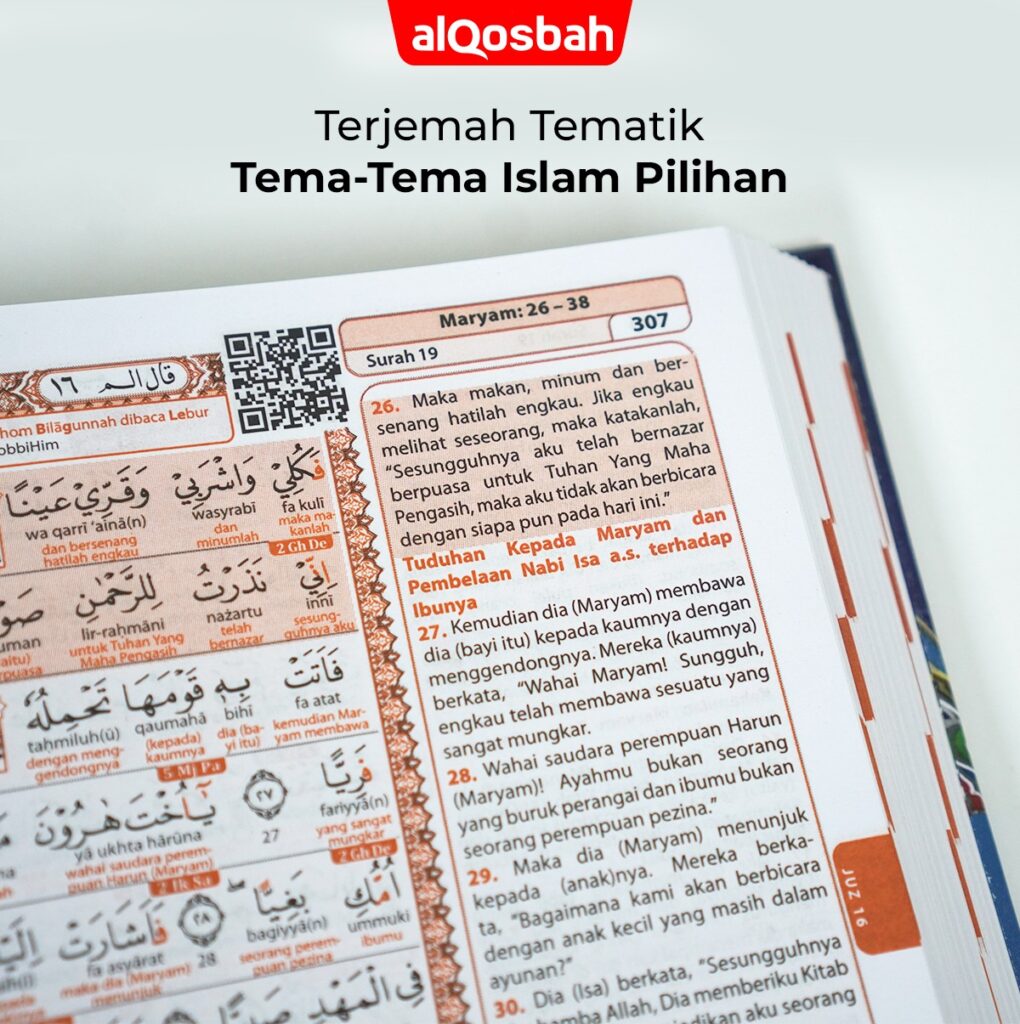 alQosbah
Terjemah Tematik
Tema-Tema Islam Pilihan
Maryam: 26 – 38
Surah 19
307
26. Maka makan, minum dan ber-
senang hatilah engkau. Jika engkau
melihat seseorang, maka katakanlah,
“Sesungguhnya aku telah bernazar
berpuasa untuk Tuhan Yang Maha
Pengasih, maka aku tidak akan berbicara
dengan siapa pun pada hari ini.”
Tuduhan Kepada Maryam dan
Pembelaan Nabi Isa a.s. terhadap
Ibunya
27. Kemudian dia (Maryam) membawa
dia (bayi itu) kepada kaumnya dengan
menggendongnya. Mereka (kaumnya)
berkata, “Wahai Maryam! Sungguh,
engkau telah membawa sesuatu yang
sangat mungkar.
28. Wahai saudara perempuan Harun
(Maryam)! Ayahmu bukan seorang
yang buruk perangai dan ibumu bukan
seorang perempuan pezina.”
29. Maka dia (Maryam) menunjuk
kepada (anak)nya. Mereka berka-
ta, “Bagaimana kami akan berbicara
dengan anak kecil yang masih dalam
ayunan?”
30. Dia (Isa) berkata, “Sesungguhnya
hamba Allah, Dia memberiku Kitab
aku seorang
JUZ 16
قال الم ١٦
hom Bilāgunnah dibaca Lebur
obbiHim
فَكُلِيْ وَاشْرَبِيْ وَقَرِّيْ عَيْنًا
fa kulī wasyrabī wa qarrī ‘ainā(n)
maka ma-
kanlah
dan
minumlah
dan bersenang
hatilah engkau
2 Gh De
اِنِّيْ نَذَرْتُ لِلرَّحْمٰنِ صَوْ
innī nażartu lir-raḥmāni uman
sesung-
guhnya aku
telah
bernazar
untuk Tuhan Yang
Maha Pengasih
aitu)
rpuasa
فَاَتَتْ بِهٖ قَوْمَهَا تَحْمِلُهٗ
fa atat bihī qaumahā taḥmiluh(ū)
kemudian Mar-
yam membawa
dia (ba-
yi itu)
(kepada)
kaumnya
dengan meng-
gendongnya
5 Mj Pa
فَرِيًّا ٢٧ يٰٓاُخْتَ هٰرُوْنَ
fariyyā(n) 27 yā ukhta hārūna
yang sangat
mungkar
wahai saudara perem-
puan Harun (Maryam)
2 Gh De
2 Ik Sa
اُمُّكِ بَغِيًّا ٢٨ فَاَشَارَتْ اِلَيْ
ummuki bagiyyā(n) 28 fa asyārat
ibumu
seorang perem-
puan pezina
maka dia (Maryam)
menunjuk
فِى الْمَهْدِ صَبِيًّا